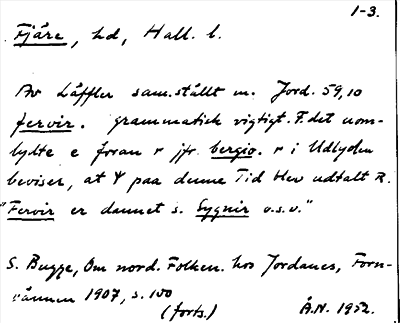 1-3.
Fjäre, hd, Hall. l.
Av Läffler sam.ställt m. Jord. 59,10
fervir. grammatisk vigtigt. F. det uom-
lydte e foran r jfr bergio. r i Udlyden
beviser, at Ψ paa denne Tid blev udtalt R.
"Fervir er dannet s. Sygnir o.s.v."
S. Bugge, Om nord. Folken. hos Jordanes, Forn-
vännen 1907, s. 100
(forts.) Å.N. 1952.